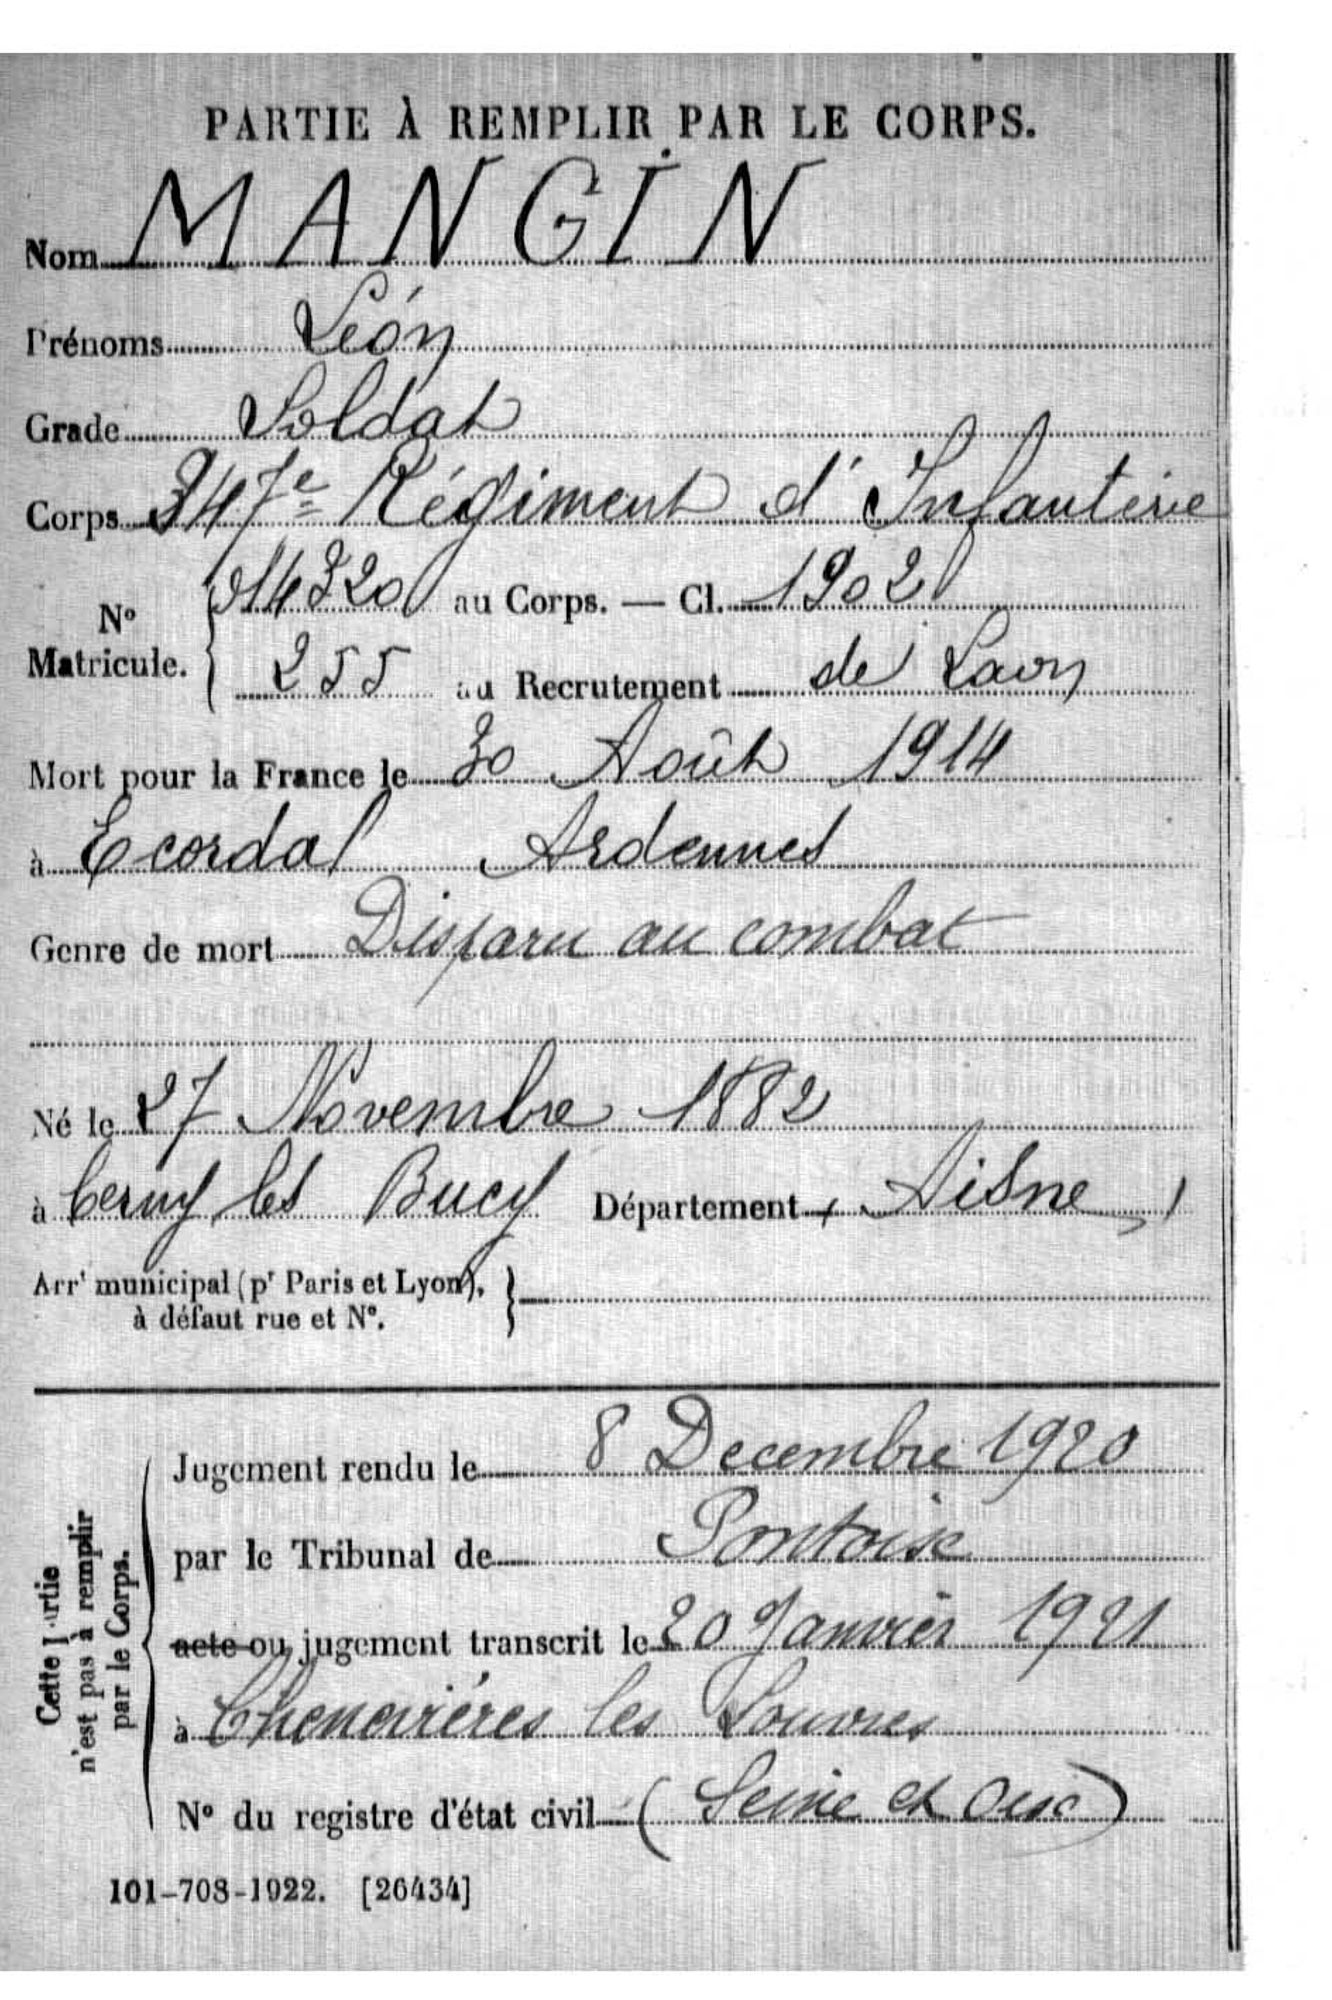 PARTIE À REMPLIR PAR LE CORPS.
Nom MANGIN
Prénoms Léon
Grade Soldat
Corps 347e Régiment d'Infanterie
N° Matricule. { 014320 au Corps. — Cl. 1902
255 au Recrutement de Laon
Mort pour la France le 30 Août 1914
à Ecordal Ardennes
Genre de mort Disparu au combat
Né le 27 Novembre 1882
à Cerny les Bucy Département ( Aisne )
Arrt municipal (pr Paris et Lyon), }
à défaut rue et N°.
Cette partie
n'est pas à remplir
par le Corps.
Jugement rendu le 8 Decembre 1920
par le Tribunal de Pontoise
acte ou jugement transcrit le 20 Janvier 1921
à Chenevières les Louvres
N° du registre d'état civil ( Seine et Oise )
101-708-1922. [26434]